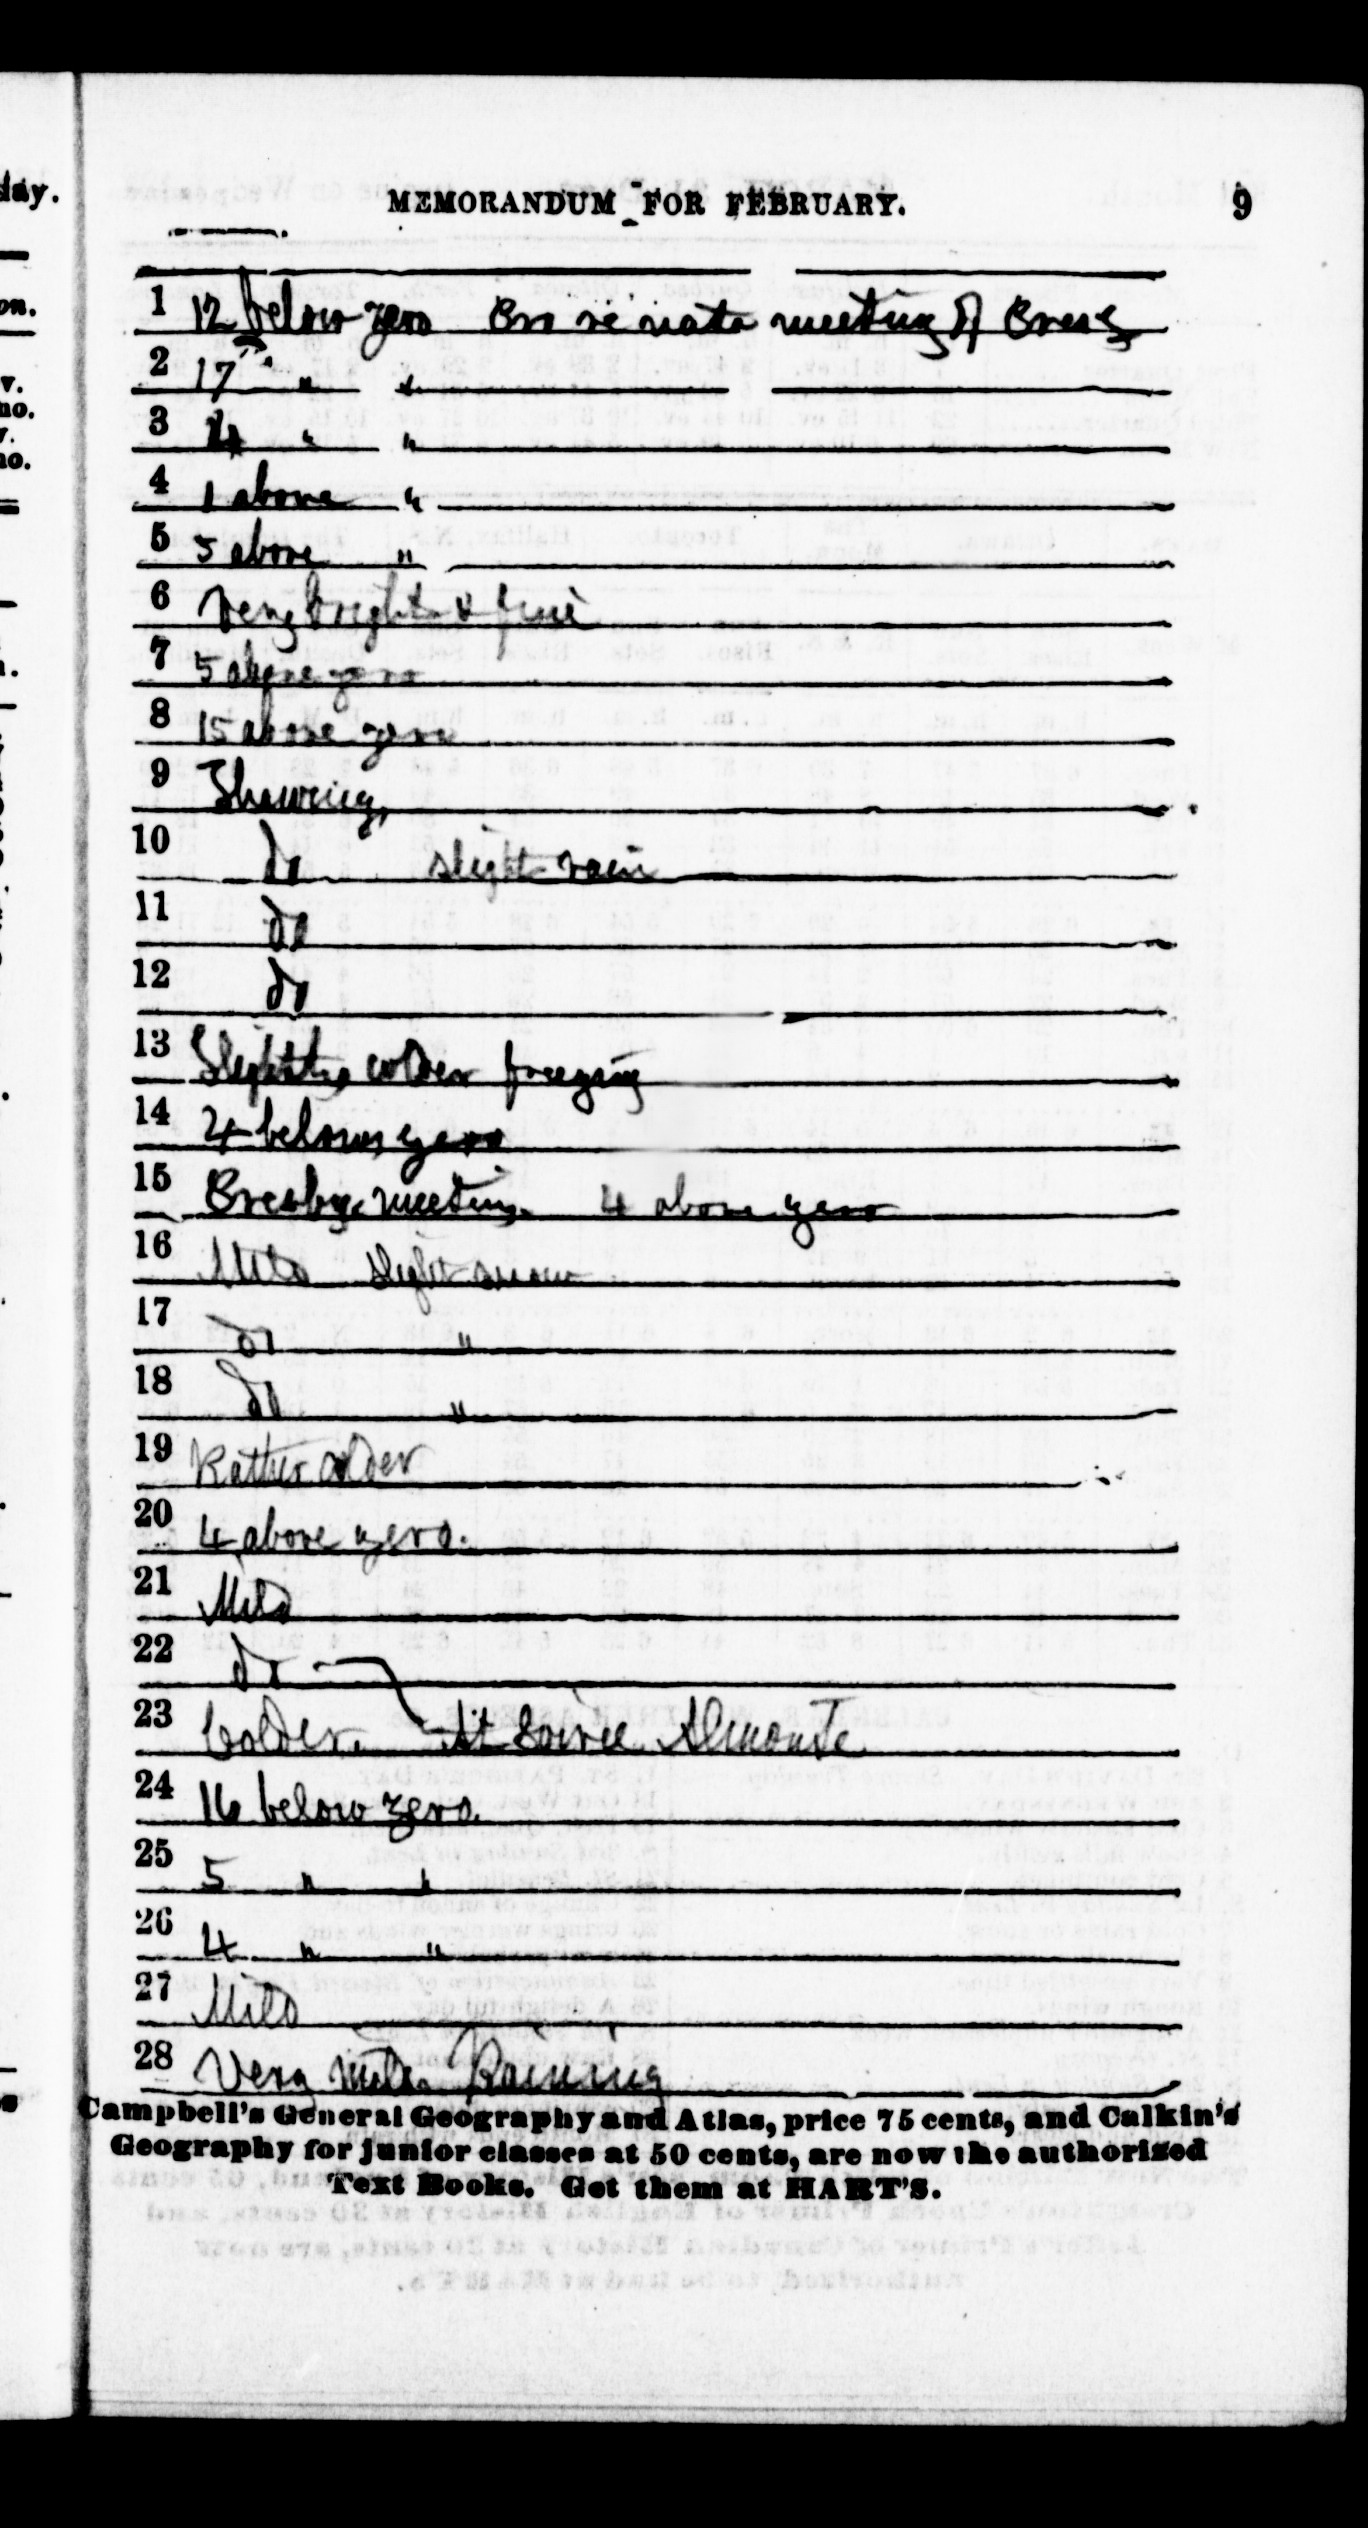 MEMORANDUM FOR FEBRUARY. 9
1 12 below zero Pro re nata meeting of Presy
2 17 " "
3 4 " "
4 1 above "
5 5 above "
6 Very bright & fine
7 5 above zero
8 15 above zero
9 Thawing,
10 do slight rain
11 do
12 do
13 Slightly colder freezing
14 4 below zero
15 Presby. meeting. 4 above zero
16 Mild slight snow
17 do "
18 do "
19 Rather colder
20 4 above zero.
21 Mild
22 do
23 Colder. At Soiree Almonte
24 16 below zero.
25 5 " "
26 4 " "
27 Mild
28 Very mild. Raining
Campbell's General Geography and Atlas, price 75 cents, and Calkin's
Geography for junior classes at 50 cents, are now the authorized
Text Books. Get them at HART'S.